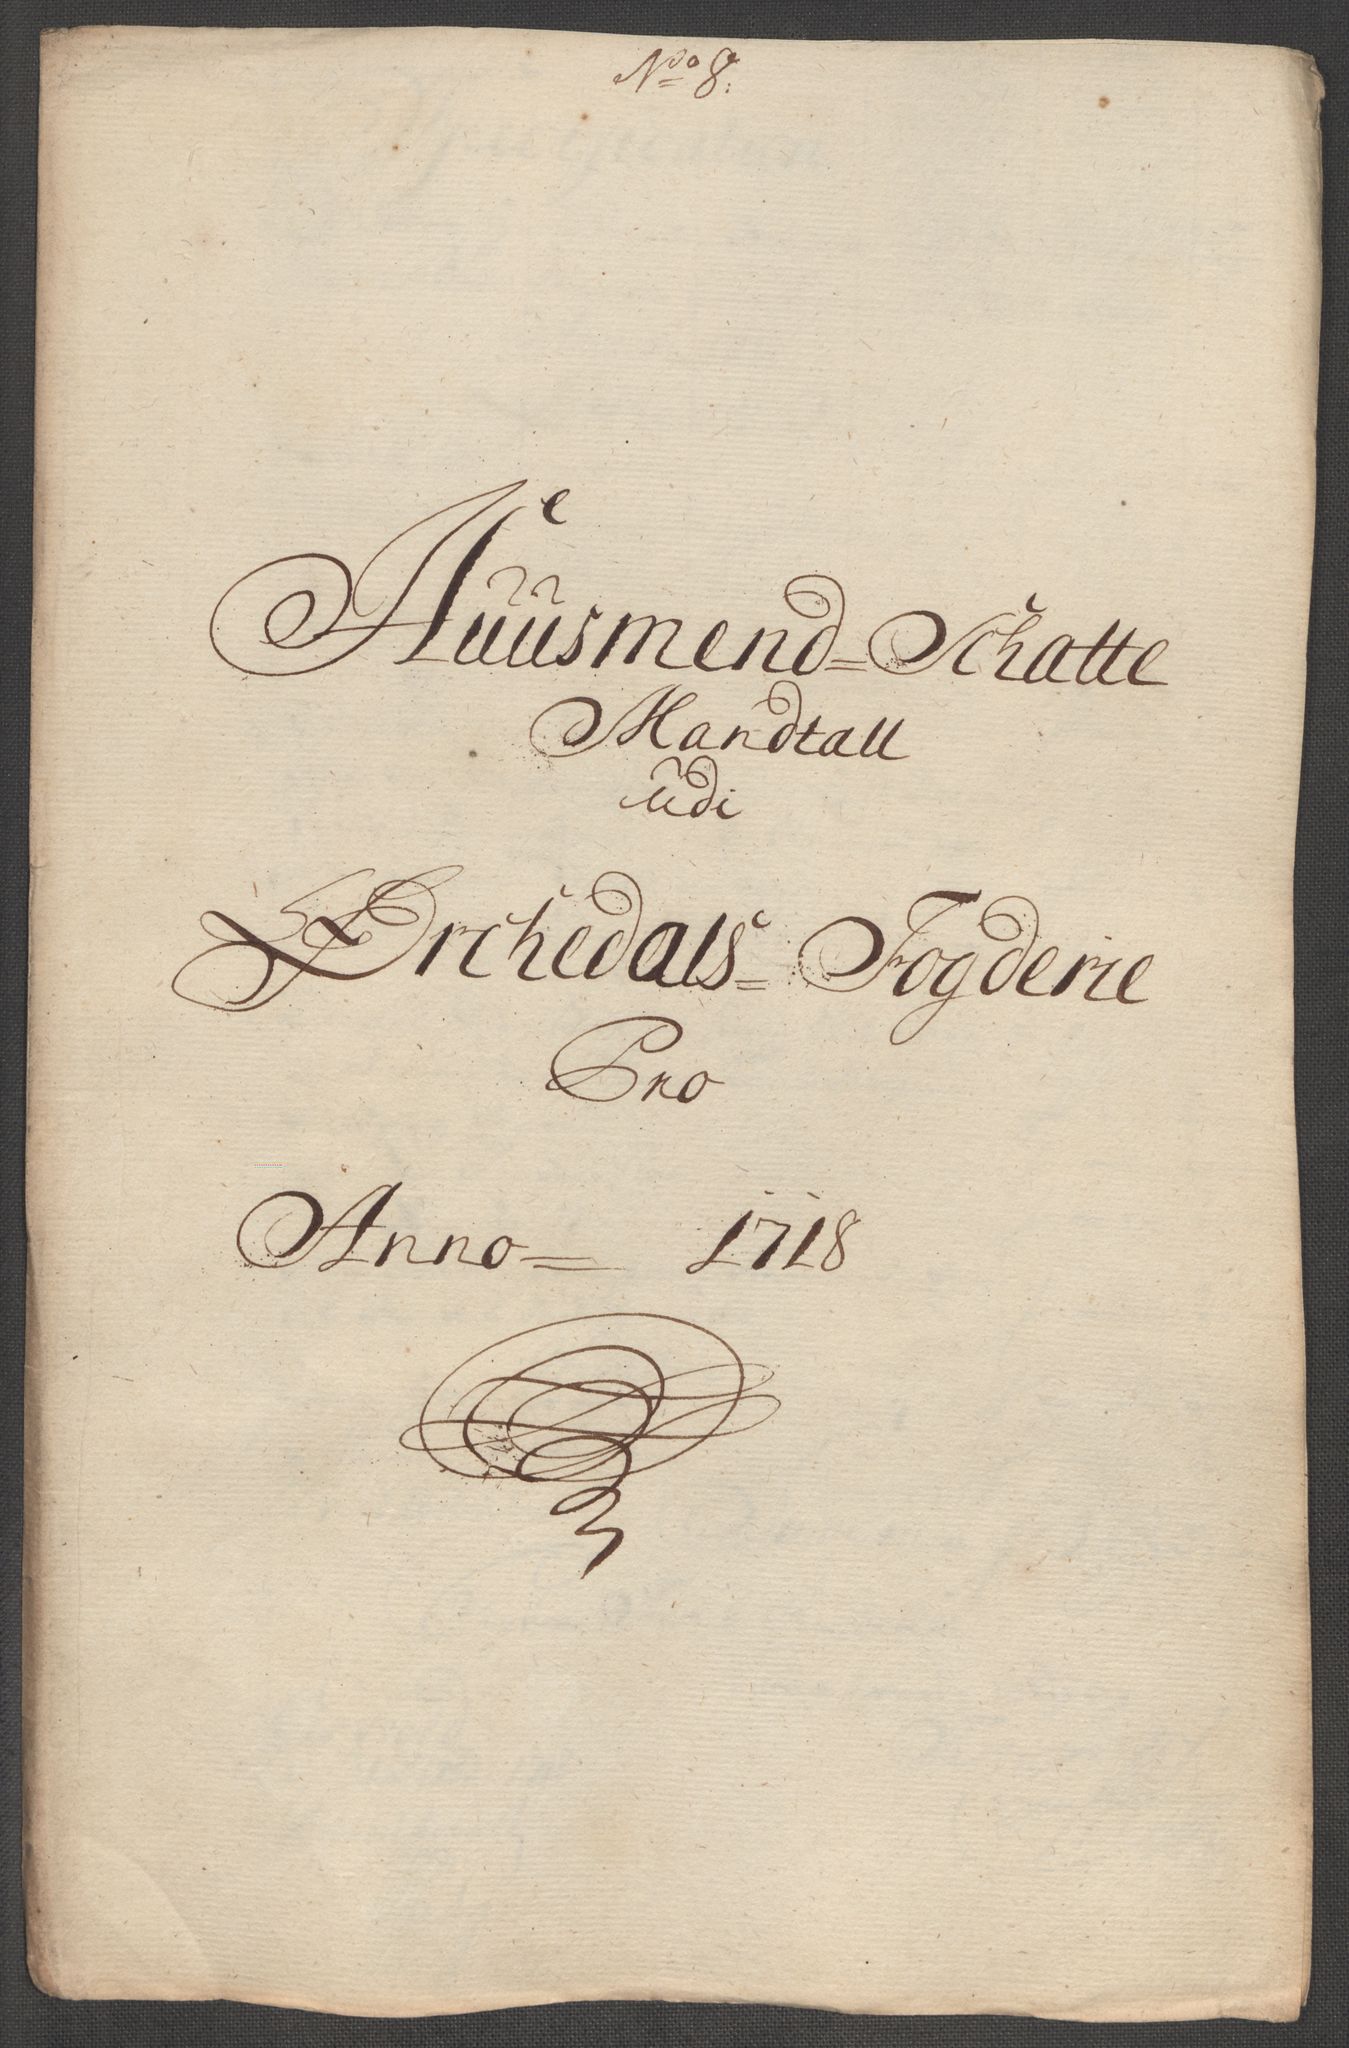 No 8.
Huusmend=Schatte
Mandtall
udi
Orchedals= Fogderie
Pro
Anno= 1718